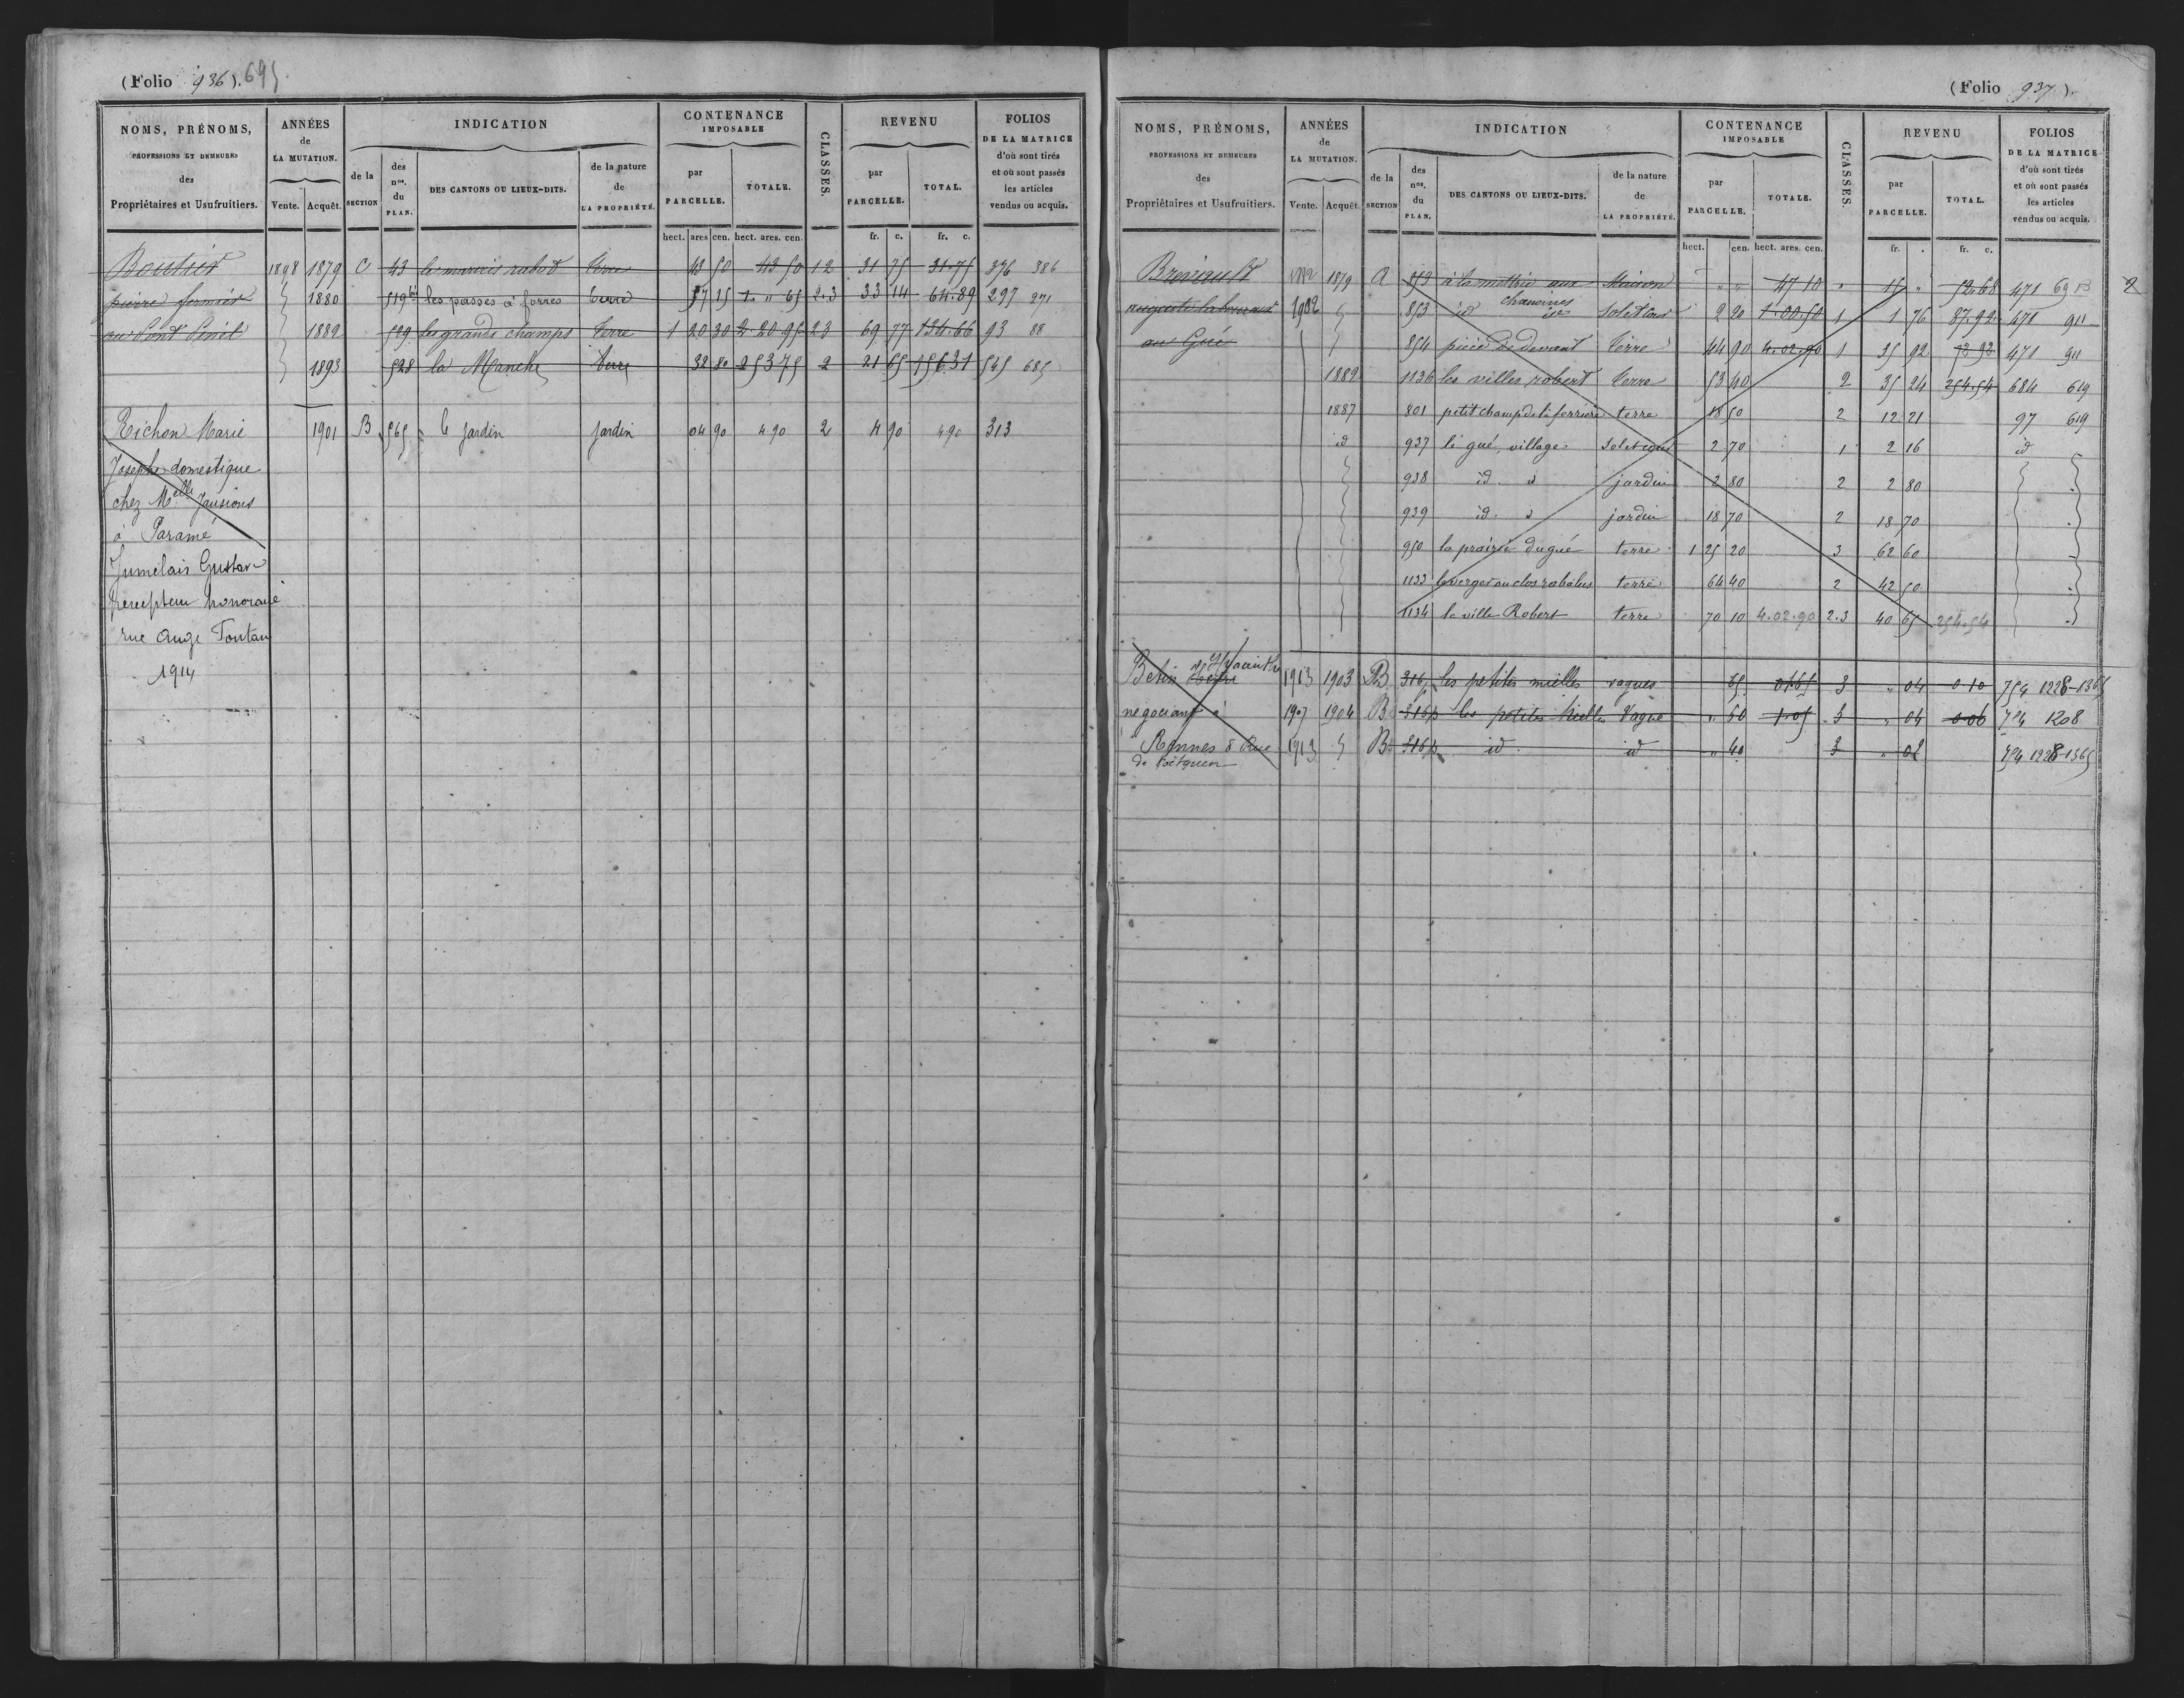 (Folio 936). 695.
NOMS, PRÉNOMS,
PROFESSIONS ET DEMEURES
des
Propriétaires et Usufruitiers.
ANNÉES
de
LA MUTATION.
Vente. Acquêt.
INDICATION
de la
SECTION
des
nos.
du
PLAN.
DES CANTONS OU LIEUX-DITS.
de la nature
de
LA PROPRIÉTÉ.
CONTENANCE
IMPOSABLE
par
PARCELLE.
TOTALE.
CLASSES.
REVENU
par
PARCELLE.
TOTAL.
FOLIOS
DE LA MATRICE
d'où sont tirés
et où sont passés
les articles
vendus ou acquis.
hect. ares cen. hect. ares. cen. fr. c. fr. c.
Boutier 1898 1879 C 43 le marais rabot terre 43 50 43 50 1 2 31 75 31.75 376 386
pierre fermier 1880 519 bis les passes à forres terre 57 15 1. " 65 2.3 33 14 64.89 297 271
au Pont 1882 529 les grands champs terre 1 20 30 2 20 95 2 3 69 77 134.66 93 88
1893 528 la Manche terre 32 80 2 53 75 2 21 65 156 31 545 685
Richon Marie 1901 B 565 le jardin jardin 04 90 4 90 2 4 90 4 90 313
Joseph domestique
chez Melle Jausions
à Paramé
Jumelais Gustave
percepteur honoraire
rue Ange Fontan
1914
(Folio 937).
NOMS, PRÉNOMS,
PROFESSIONS ET DEMEURES
des
Propriétaires et Usufruitiers.
ANNÉES
de
LA MUTATION.
Vente. Acquêt.
INDICATION
de la
SECTION
des
nos.
du
PLAN.
DES CANTONS OU LIEUX-DITS.
de la nature
de
LA PROPRIÉTÉ.
CONTENANCE
IMPOSABLE
par
PARCELLE.
TOTALE.
CLASSES.
REVENU
par
PARCELLE.
TOTAL.
FOLIOS
DE LA MATRICE
d'où sont tirés
et où sont passés
les articles
vendus ou acquis.
hect. cen. hect. ares. cen. fr. . fr. c.
1879 A 853 à la mettrie aux maison " " 47 10 " 15 " 52.68 471 69 13 2
chanoines
auguste laboureur 1902 853 id sol et cour 2 20 1.00.50 1 1 76 87.92 471 911
au Gué 854 pièce de devant terre 44 90 4.02.90 1 35 92 471 911
1889 1136 les villes robert terre 53 40 2 35 24 254.54 684 619
1887 801 petit champ de la ferrière terre 18 50 2 12 21 97 619
id 937 le gué, village sol et cour 2 70 1 2 16 id
938 id. " jardin 2 80 2 2 80
939 id. " jardin 18 70 2 18 70
950 la prairie du gué terre 1 25 20 3 62 60
1133 le verger au clos rabalus terre 64 40 2 42 50
1134 la ville Robert terre 70 10 4.02.90 2.3 40 65 254.54
Hyacinthe
Betin 1913 1903 B 316 p les petites mielles vagues 65 0 1.65 3 " 04 0.10 754 1228-1365
négociant à 1907 1904 B 316 p les petites Mielles Vague " 60 1.05 3 " 04 0.06 754 1208
Rennes 8 Rue 1913 B 316 p id. id " 40 3 " 02 754 1228-1365
de